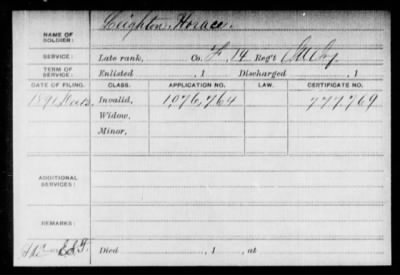 NAME OF SOLDIER: Leighton, Horace.
SERVICE: Late rank, Co. F, 14 Reg't
TERM OF SERVICE: Enlisted , 1 Discharged , 1
DATE OF FILING. CLASS. APPLICATION NO. LAW. CERTIFICATE NO.
1891 Invalid, 1,076,764 777,769
Widow,
Minor,
ADDITIONAL SERVICES:
REMARKS:
Died , 1 , at